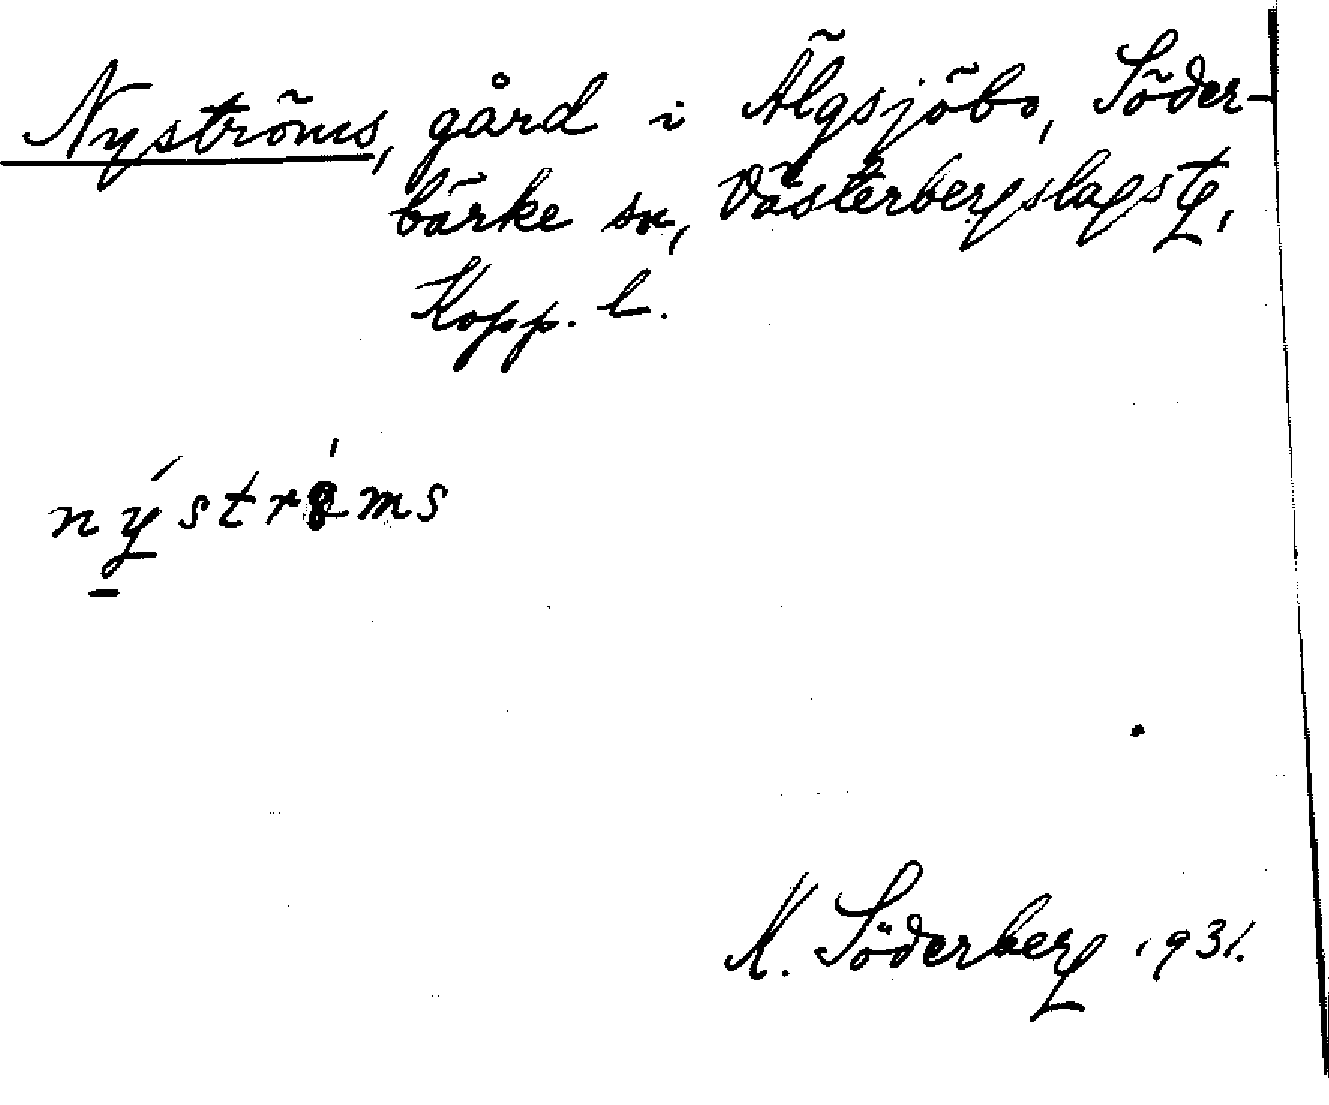 Nyströms, gård i Älgsjöbo, Söder-
bärke sn, Västerbergslags tg,
Kopp. l.
nýströ́ms
K. Söderberg 1931.